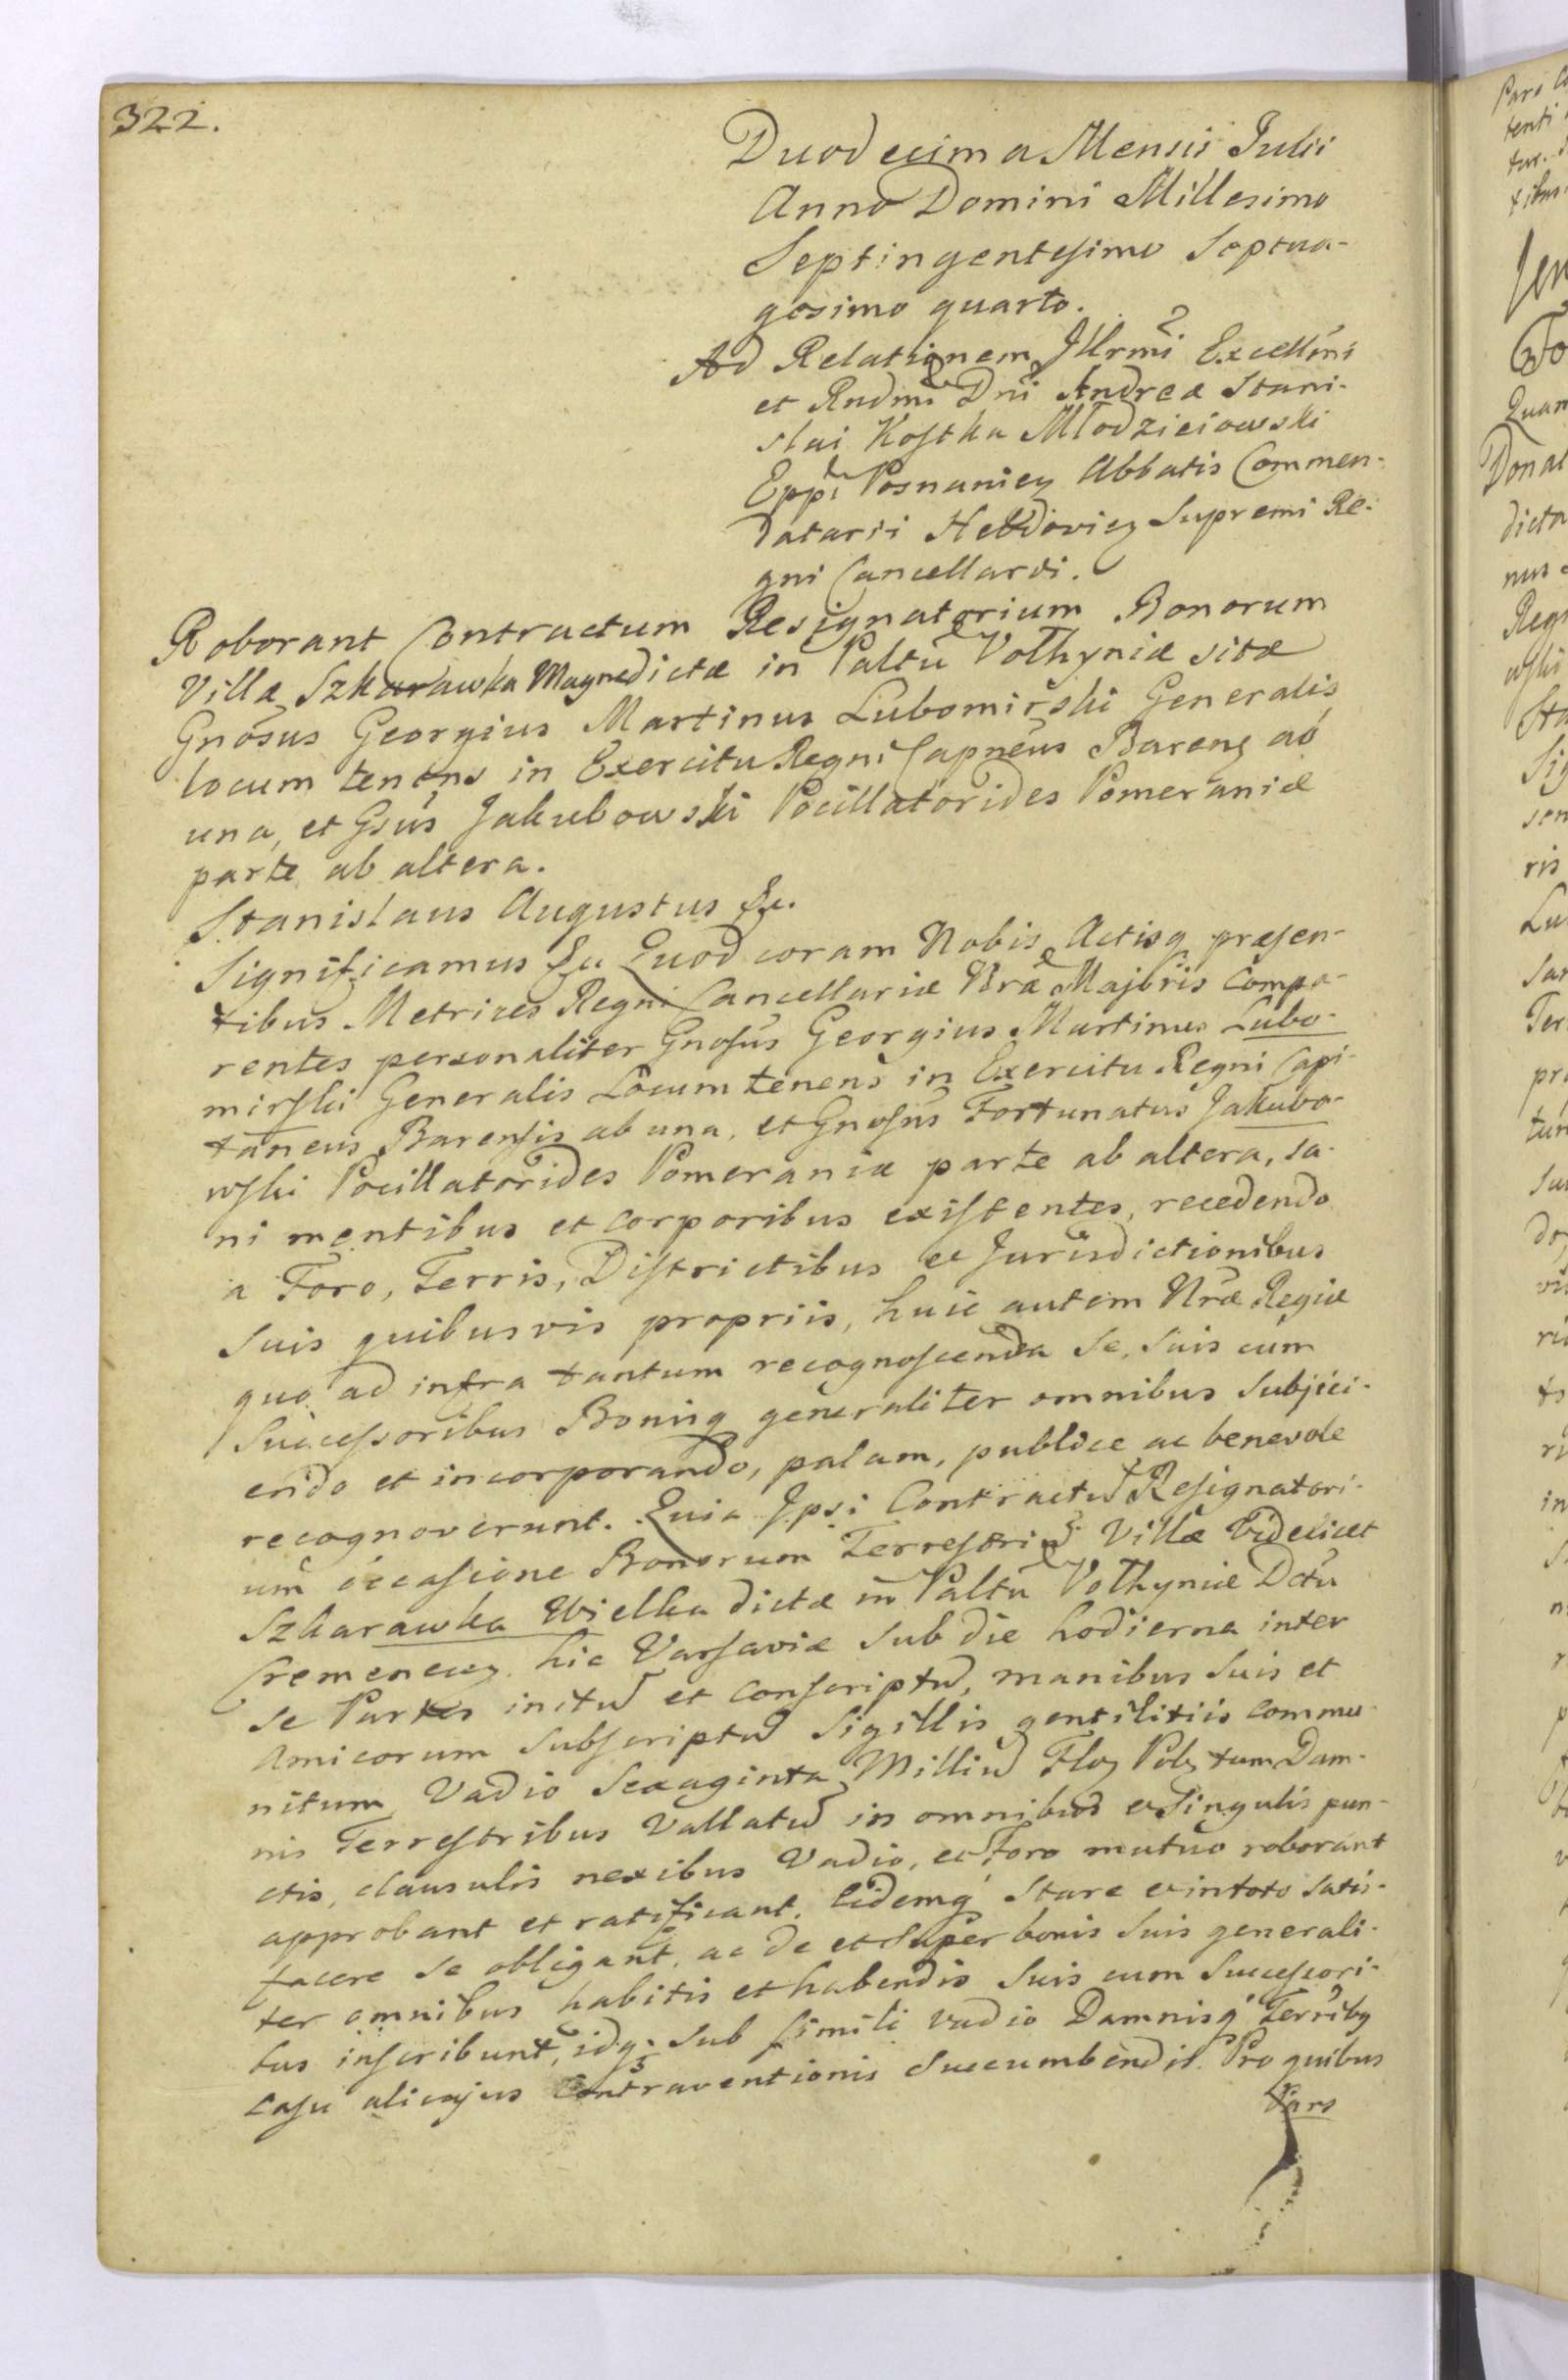 322.
Duodecima Mensis Julii
Anno Domini Millesimo
Septingentesimo Septua-
gesimo quarto.
Ad Relationem Illrmi Excellmi
et Rndmi Dni Andreæ Stani-
slai Kostka Młodzieiowski
Eppi Posnanien Abbatis Commen-
datarii Hebdovien Supremi Re-
gni Cancellarii.
Roborant Contractum Resignatorium Bonorum
Villæ Szkarawka Magnedictæ in Paltu Volhyniæ sitæ
Gnosus Georgius Martinus Lubomirski Generalis
locum tenens in Exercitu Regni Capneus Barens ab
una, et Gsus Jakubowski Pocillatorides Pomeraniæ
parte ab altera.
Stanislaus Augustus &c.
Significamus &c Quod coram Nobis Actisq præsen-
tibus Metrices Regni Cancellariæ Nræ Majoris compa-
rentes personaliter Gnosus Georgius Martinus Lubo-
mirski Generalis Locum tenens in Exercitu Regni Capi-
taneus Barensis ab una, et Gnosus Fortunatus Jakubo-
wski Pocillatorides Pomeraniæ parte ab altera, sa-
ni mentibus et corporibus existentes, recedendo
a Foro, Terris, Districtibus et Jurisdictionibus
suis quibusvis propriis, huic autem Nræ Regiæ
quo ad infra tantum recognoscenda se, suis cum
Successoribus Bonisq generaliter omnibus subjici-
endo et incorporando, palam, publice ac benevole
recognoverunt. Quia Ipsi Contractu Resignatori-
um occasione Bonorum Terrestriu Villæ Videlicet
Szkarawka Wielka dictæ in Paltu Volhyniæ Dctu
Cremenecen hic Varsaviæ sub die hodierna inter
se Partes initu et conscriptu, manibus suis et
Amicorum subscriptu Sigillis gentilitiis commu-
nitum Vadio Sexaginta Milliu Flor Pol tum Dam-
nis Terrestribus Vallatu in omnibus et singulis pun-
ctis, clausulis nexibus Vadio, et Foro mutuo roborant
approbant et ratificant. Eidemq stare et in toto satis-
facere se obligant, ac de et super bonis suis generali-
ter omnibus habitis et habendis suis cum Successori-
bus inscribunt, idq. sub simili vadio Damnisq Terriby
casu alicujus contraventionis succumbendis. Pro quibus
Pars